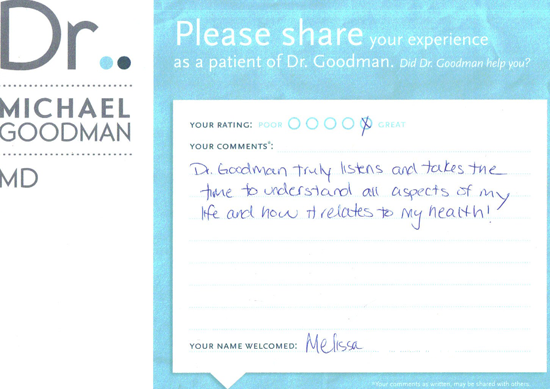 Dr..
MICHAEL
GOODMAN
MD
Please share your experience
as a patient of Dr. Goodman. Did Dr. Goodman help you?
YOUR RATING: POOR GREAT
YOUR COMMENTS*:
Dr. Goodman truly listens and takes the
time to understand all aspects of my
life and how it relates to my health!
YOUR NAME WELCOMED: Melissa
*Your comments as written, may be shared with others.